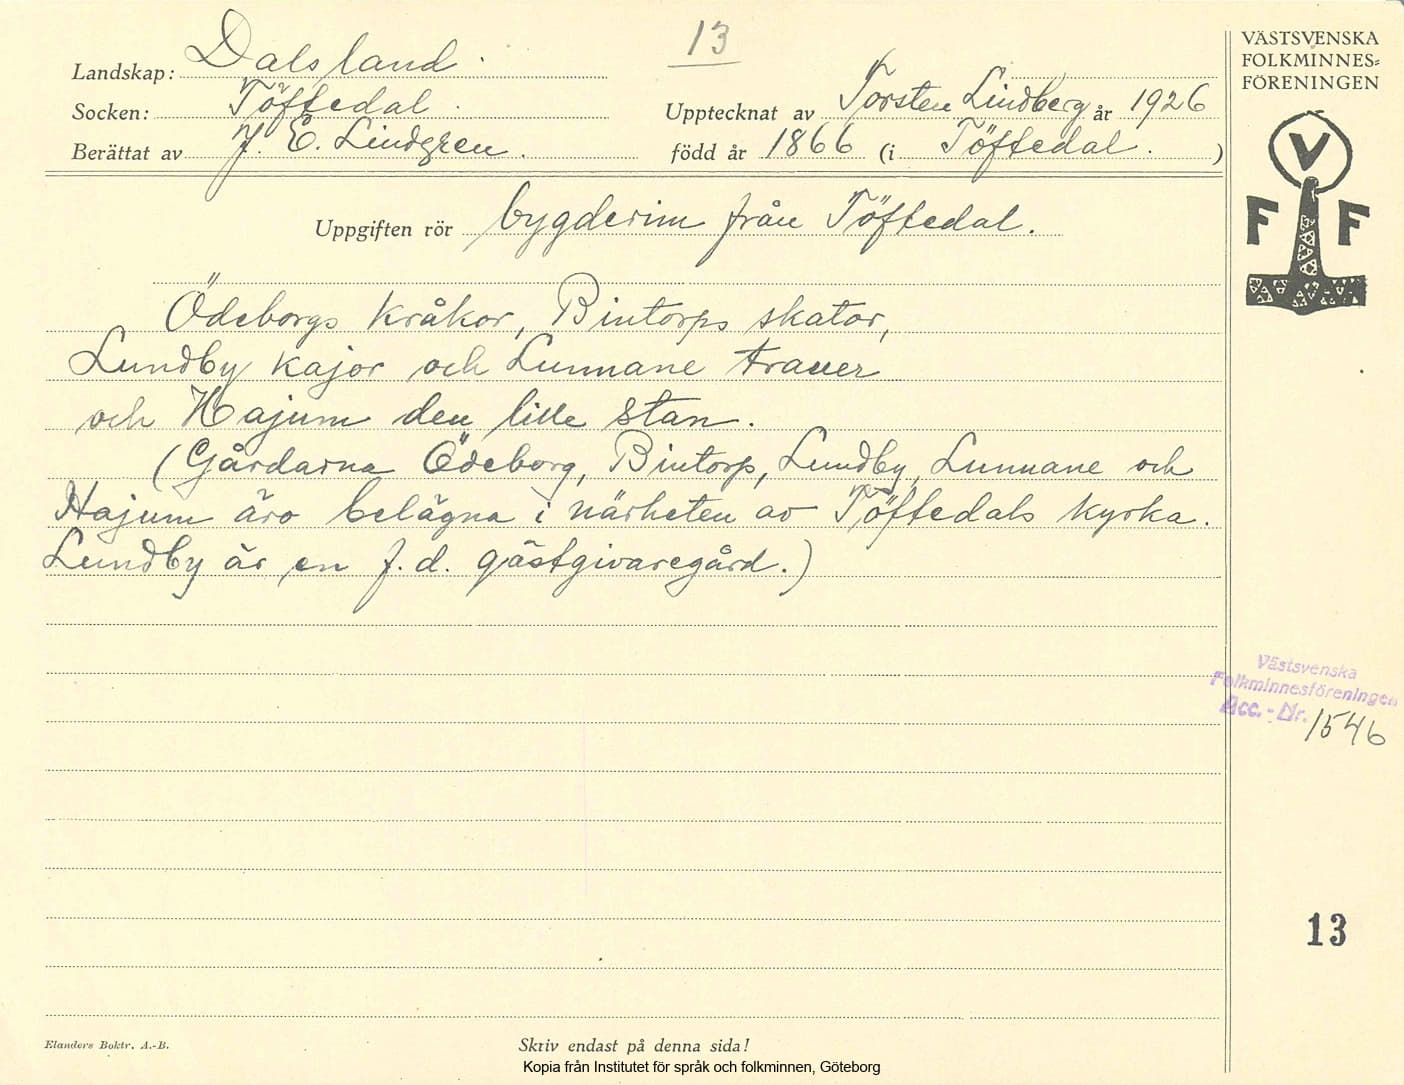 13
VÄSTSVENSKA
FOLKMINNES=
FÖRENINGEN
V
F F
Landskap: Dalsland.
Socken: Töftedal.
Upptecknat av Torsten Lindberg år 1926
Berättat av J. E. Lindgren.
född år 1866 (i Töftedal.)
Uppgiften rör bygderim från Töftedal.
Ödeborgs kråkor, Bintorps skator,
Lundby kajor och Lunnane traner
och Hajum den lille stan.
(Gårdarna Ödeborg, Bintorp, Lundby, Lunnane och
Hajum äro belägna i närheten av Töftedals kyrka.
Lundby är en f.d. gästgivaregård.)
Västsvenska
Folkminnesföreningen
Acc.-Nr. 1546
13
Elanders Boktr. A.-B.
Skriv endast på denna sida!
Kopia från Institutet för språk och folkminnen, Göteborg